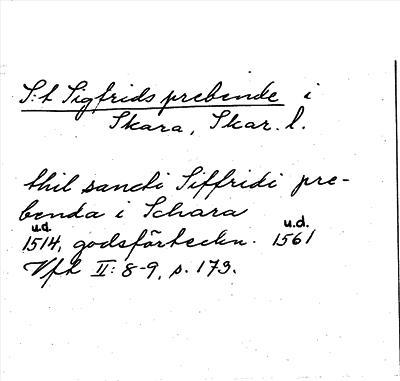 S:t Sigfrids prebende i
Skara, Skar. l.
thil sancti Siffridi pre-
benda i Schara
u.d. u.d.
1514, godsförteckn. 1561
Vfh II: 8-9, s. 173.